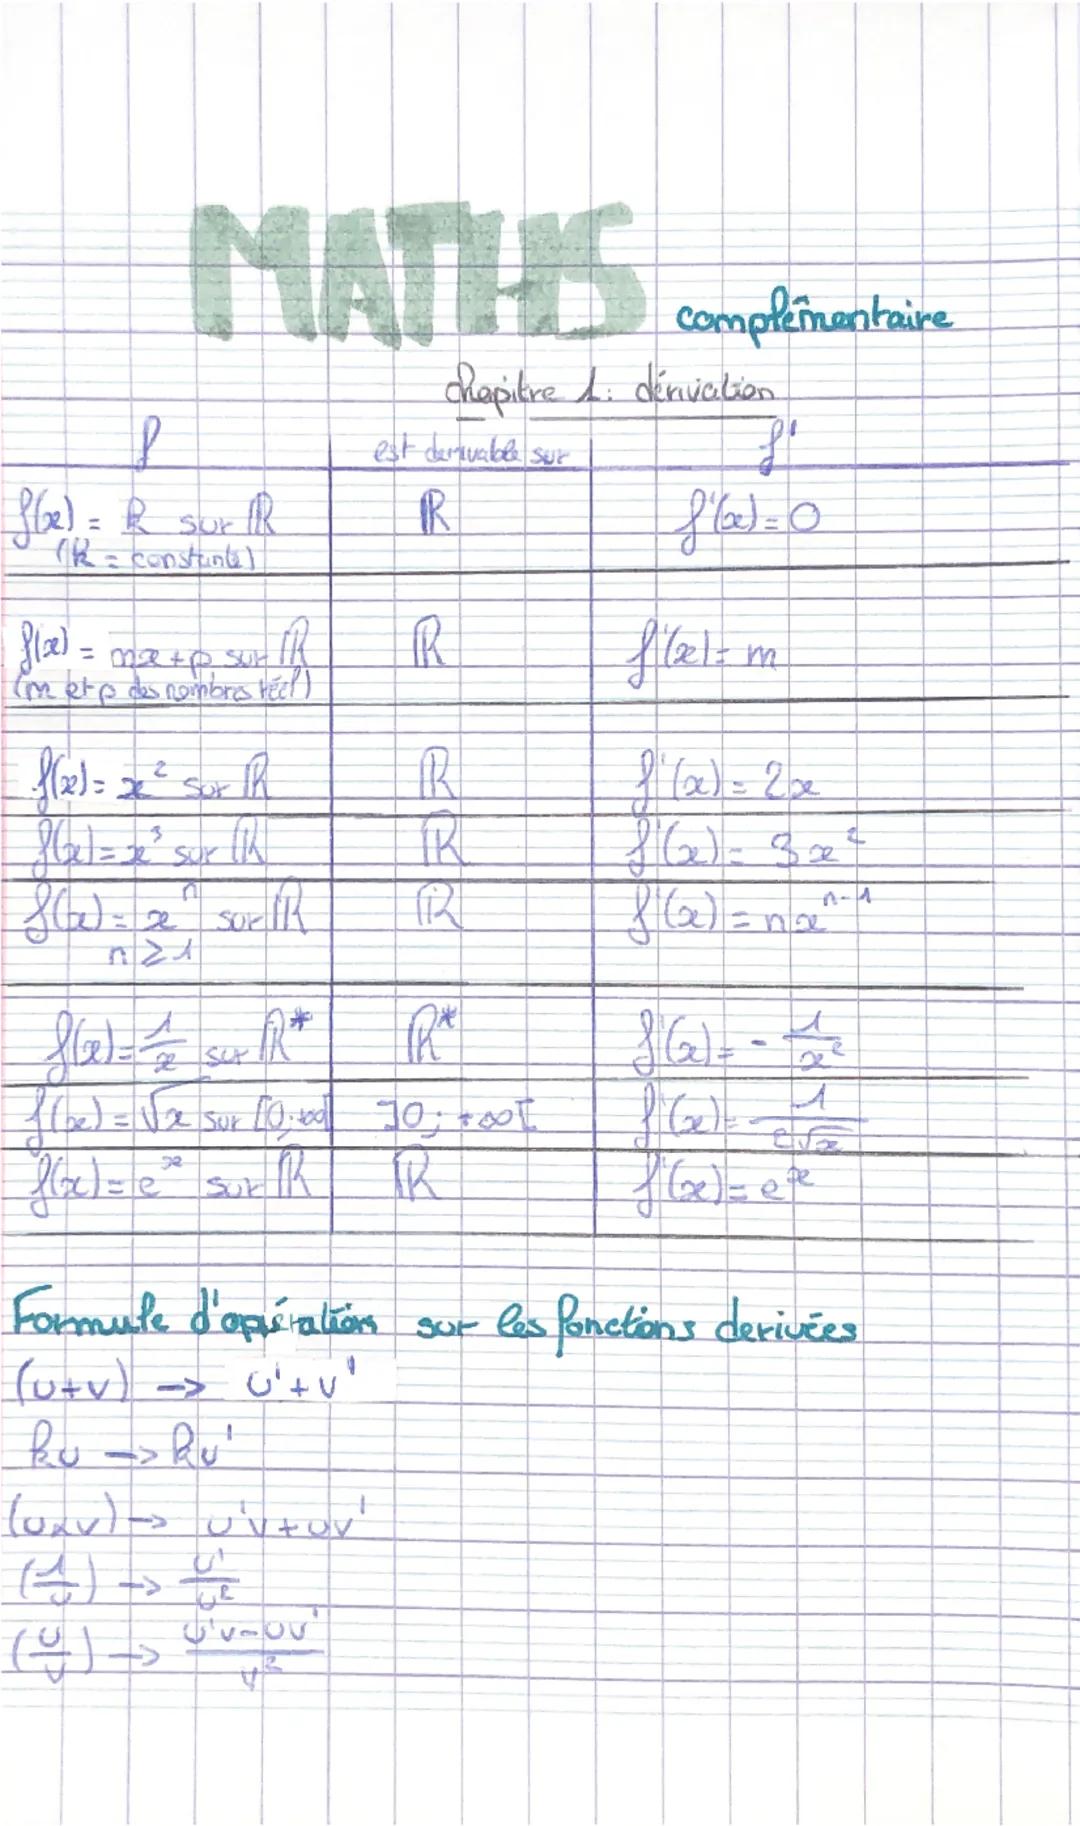 MATHS
complémentaire
chapitre 1: dérivation
f est derivable sur f'
f(x) = k sur ℝ ℝ f'(x) = 0
(k = constante)
f(x) = mx + p sur ℝ ℝ f'(x) = m
(m et p des nombres réel)
f(x) = x² sur ℝ ℝ f'(x) = 2x
f(x) = x³ sur ℝ ℝ f'(x) = 3x²
f(x) = xⁿ sur ℝ ℝ f'(x) = nxⁿ⁻¹
n ≥ 1
f(x) = 1/x sur ℝ* ℝ* f'(x) = - 1/x²
f(x) = √x sur [0;+∞[ ]0; +∞[ f'(x) = 1/2√x
f(x) = eˣ sur ℝ ℝ f'(x) = eˣ
Formule d'opération sur les fonctions derivées
(u+v) → u'+v'
ku → ku'
(u×v) → u'v+uv'
(1/u) → u'/u²
(u/v) → u'v-uv'/v²